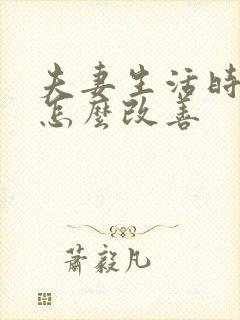 夫妻生活時
怎麼改善
蕭毅凡